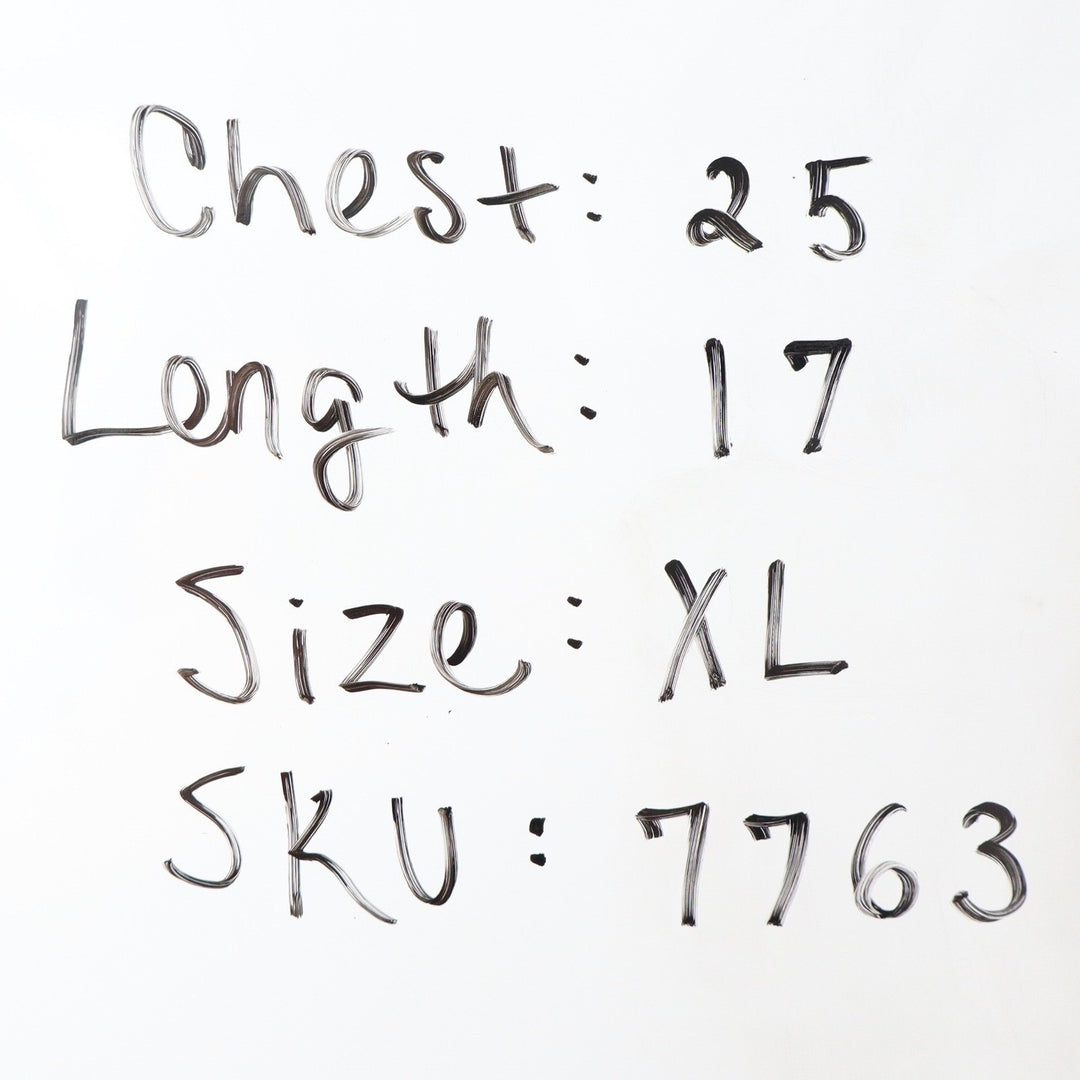 Chest: 25
Length: 17
Size: XL
SKU: 7763